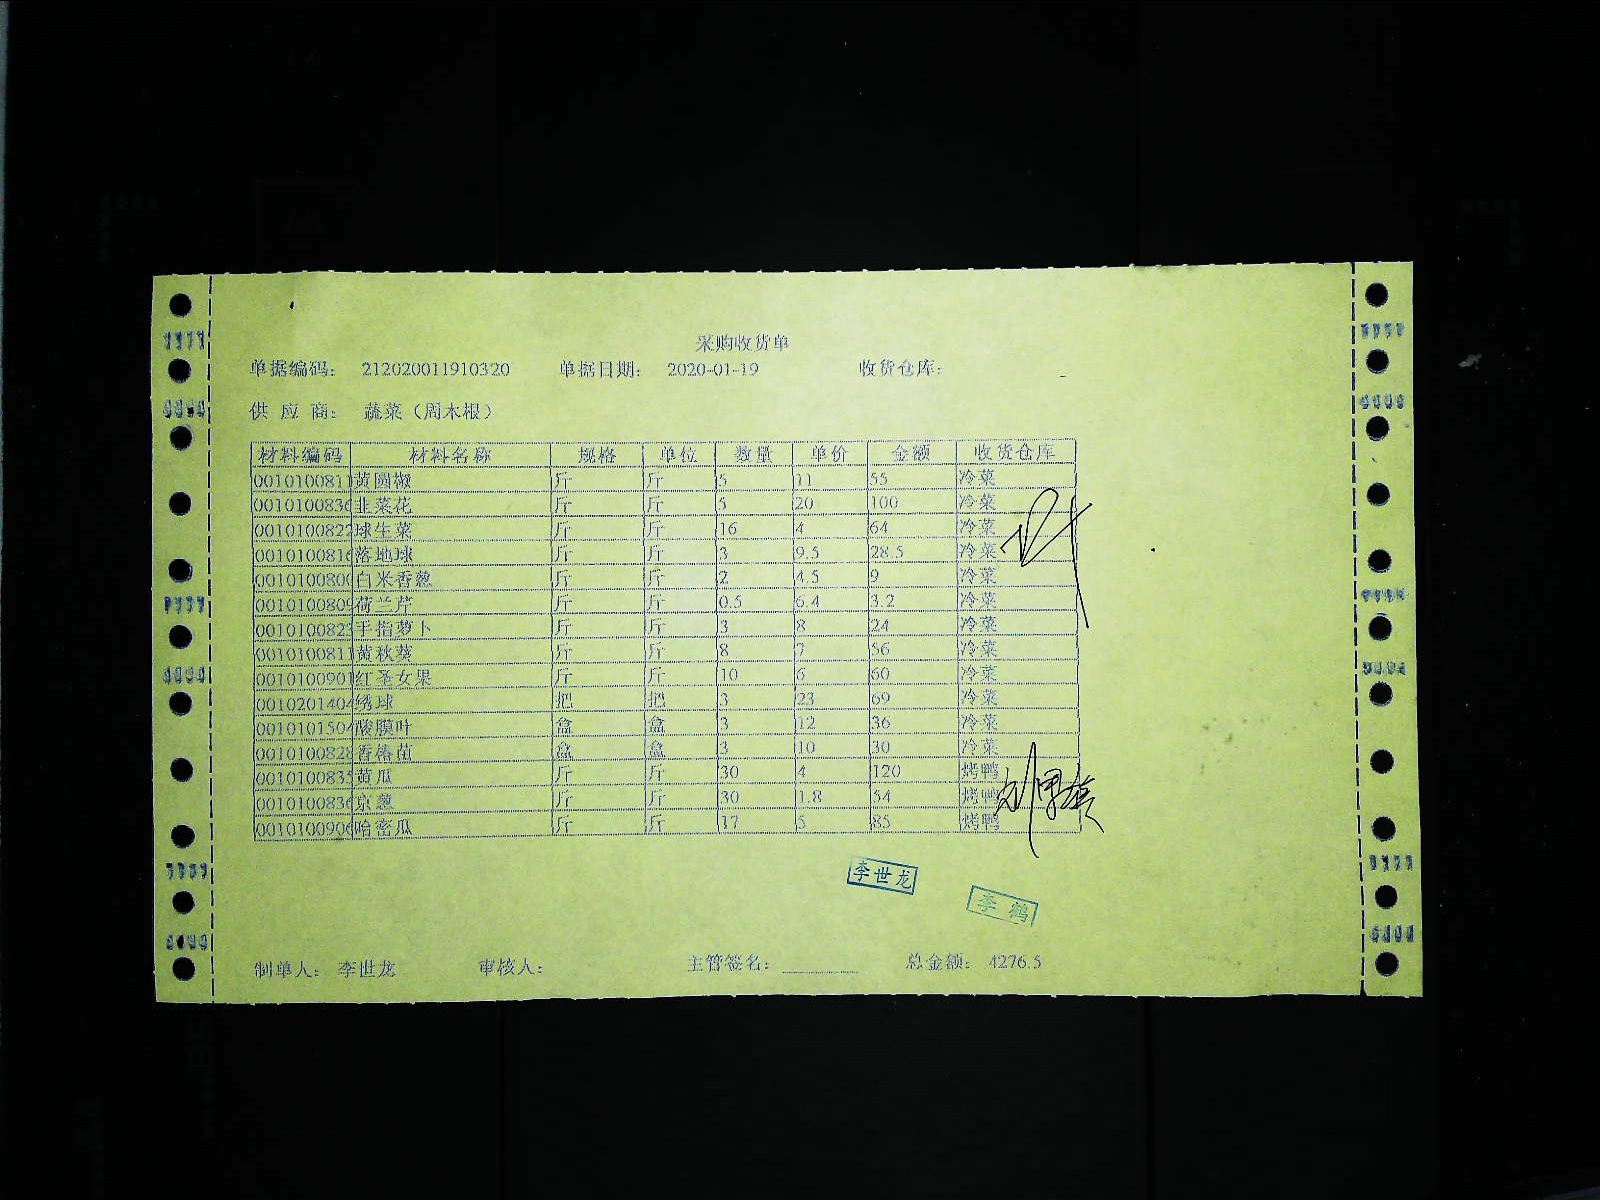 采购收货单
单据编码： 212020011910320 单据日期： 2020-01-19 收货仓库：
供 应 商： 蔬菜（周木根）
材料编码 材料名称 规格 单位 数量 单价 金额 收货仓库
0010100811 黄圆椒 斤 斤 5 11 55 冷菜
0010100836 韭菜花 斤 斤 5 20 100 冷菜
0010100822 球生菜 斤 斤 16 4 64 冷菜
0010100816 落地球 斤 斤 3 9.5 28.5 冷菜
0010100800 白米香葱 斤 斤 2 4.5 9 冷菜
0010100809 荷兰芹 斤 斤 0.5 6.4 3.2 冷菜
0010100823 手指萝卜 斤 斤 3 8 24 冷菜
0010100811 黄秋葵 斤 斤 8 7 56 冷菜
0010100901 红圣女果 斤 斤 10 6 60 冷菜
0010201404 绣球 把 把 3 23 69 冷菜
0010101504 酸膜叶 盒 盒 3 12 36 冷菜
0010100828 香椿苗 盒 盒 3 10 30 冷菜
0010100835 黄瓜 斤 斤 30 4 120 烤鸭
0010100836 京葱 斤 斤 30 1.8 54 烤鸭
0010100906 哈密瓜 斤 斤 17 5 85 烤鸭
李世龙
李鹤
制单人： 李世龙 审核人： 主管签名： 总金额： 4276.5